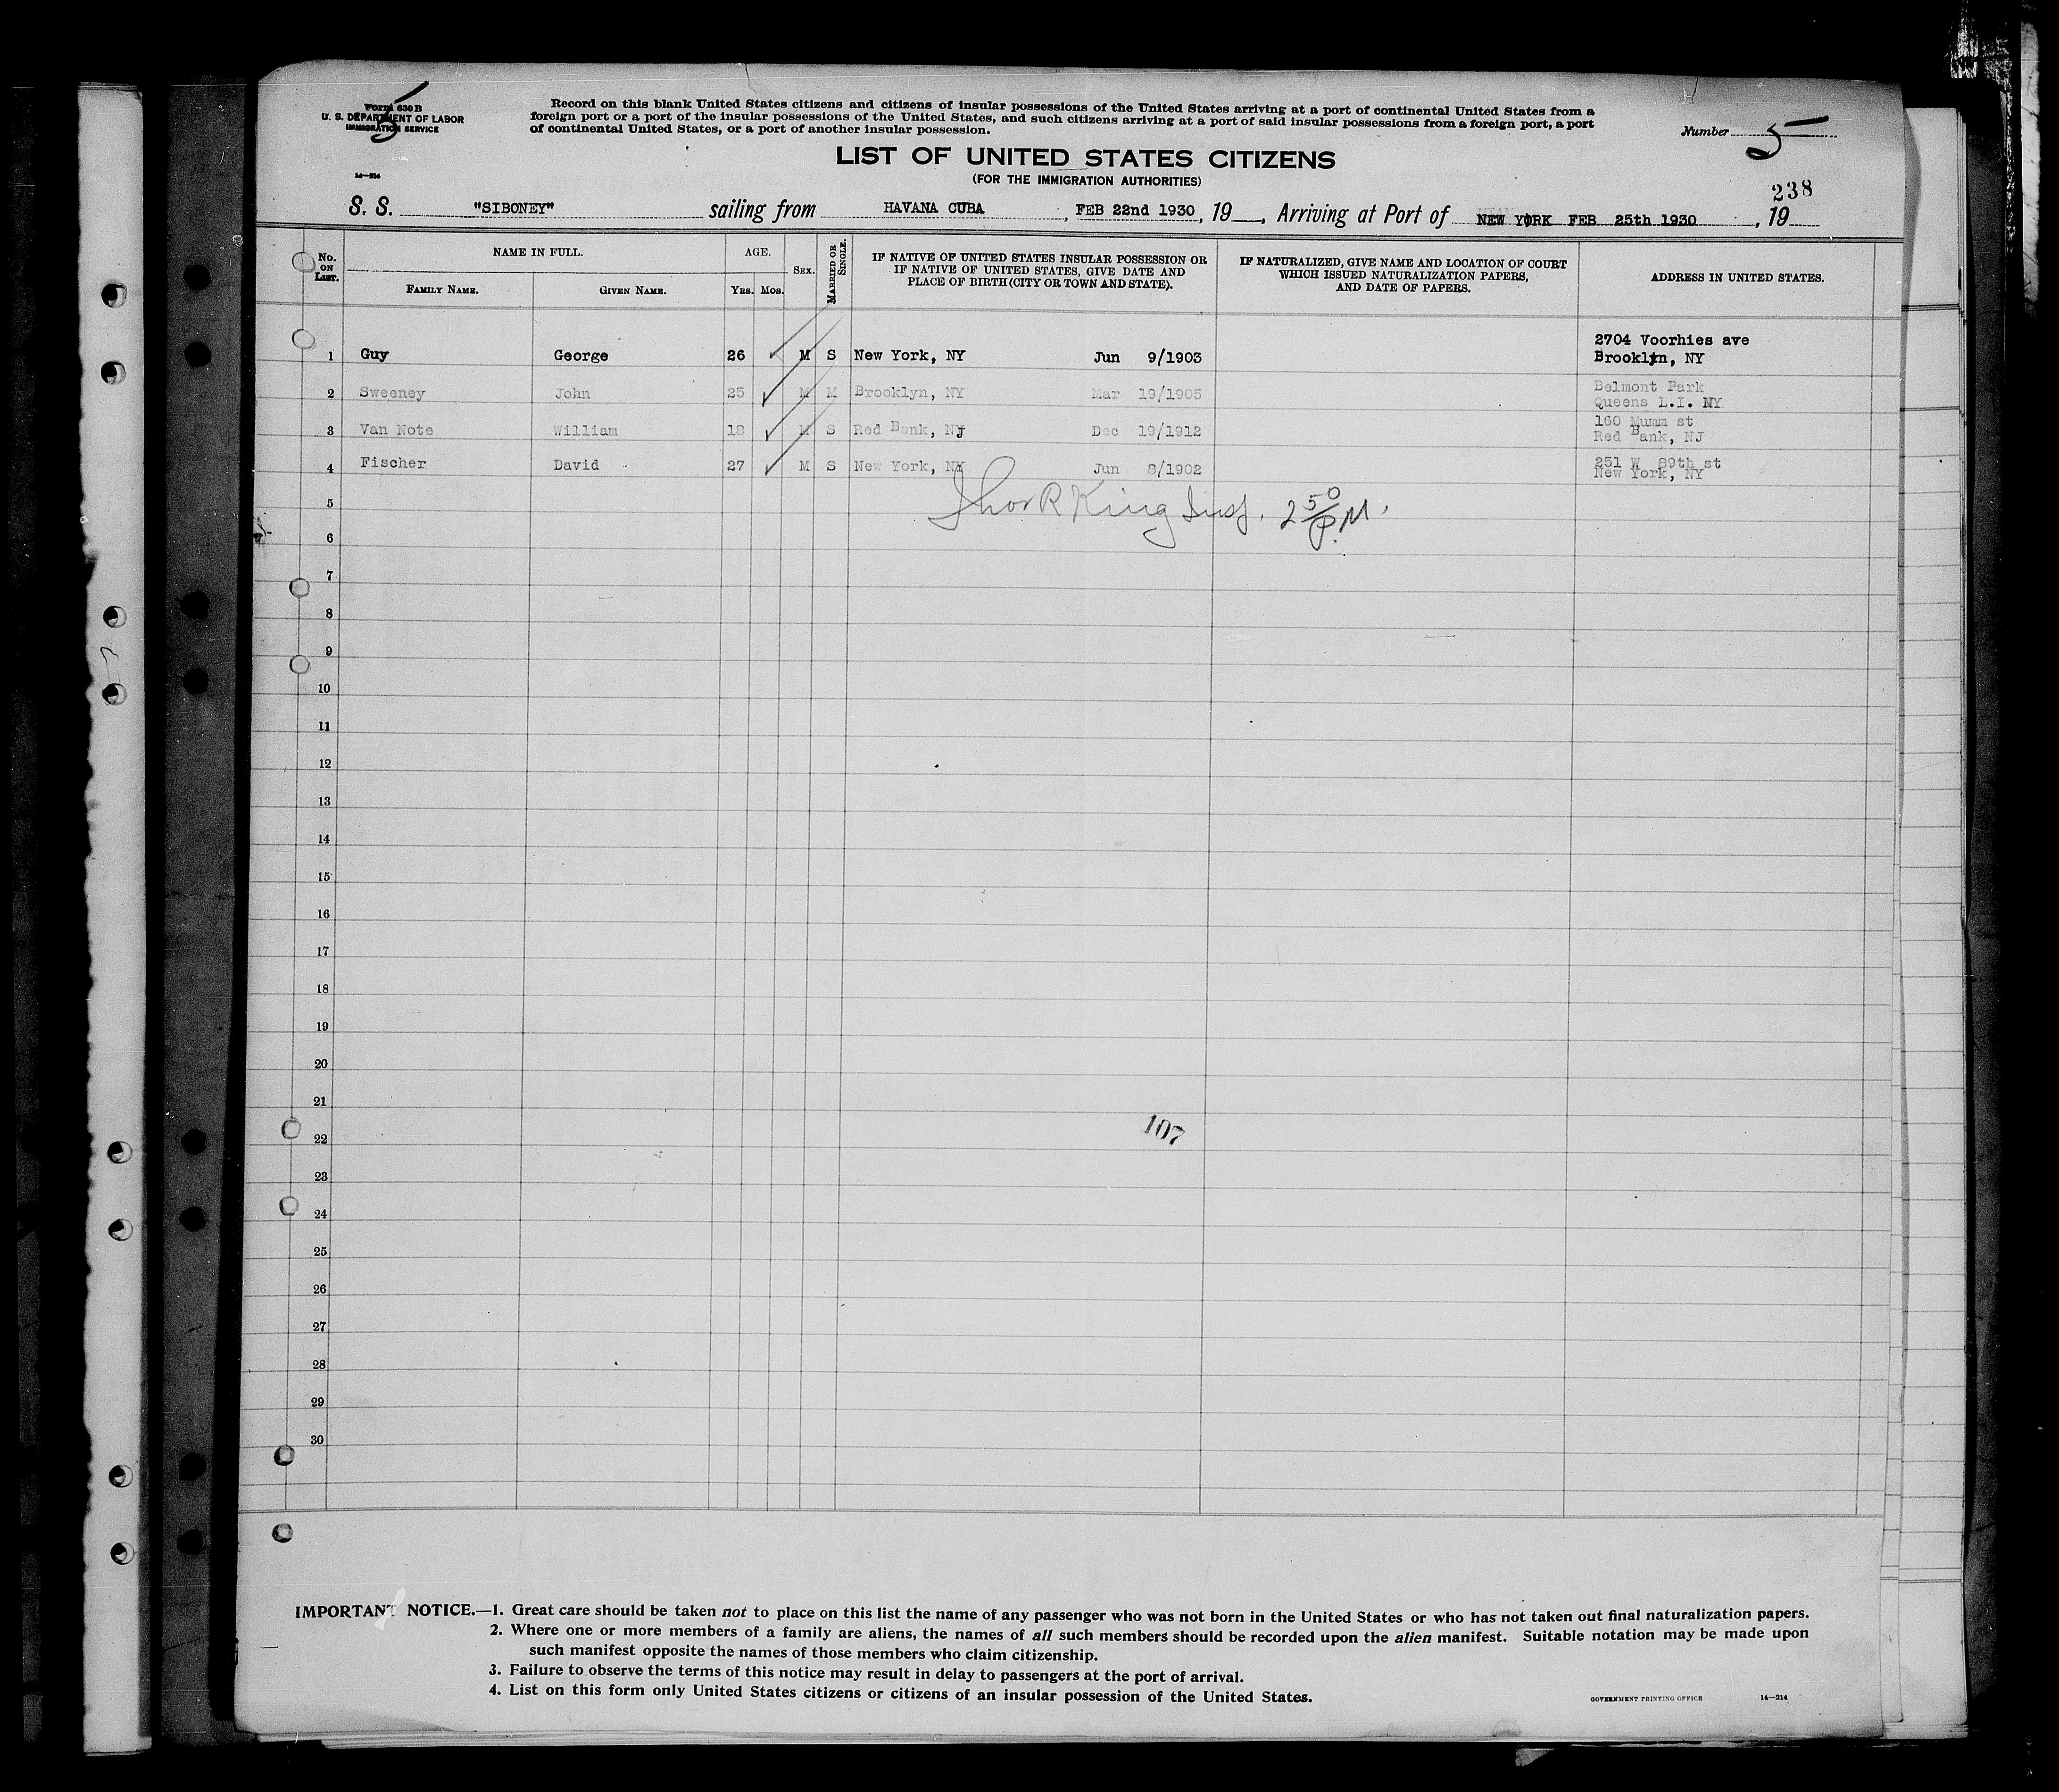 Form 630 B
U. S. DEPARTMENT OF LABOR
IMMIGRATION SERVICE
14—214
5
Record on this blank United States citizens and citizens of insular possessions of the United States arriving at a port of continental United States from a
foreign port or a port of the insular possessions of the United States, and such citizens arriving at a port of said insular possessions from a foreign port, a port
of continental United States, or a port of another insular possession.
Number 5
LIST OF UNITED STATES CITIZENS
(FOR THE IMMIGRATION AUTHORITIES)
238
S. S. "SIBONEY" sailing from HAVANA CUBA, FEB 22nd 1930, 19__, Arriving at Port of NEW YORK FEB 25th 1930, 19
No. ON LIST. NAME IN FULL. AGE. SEX. MARRIED OR SINGLE. IF NATIVE OF UNITED STATES INSULAR POSSESSION OR IF NATIVE OF UNITED STATES, GIVE DATE AND PLACE OF BIRTH (CITY OR TOWN AND STATE). IF NATURALIZED, GIVE NAME AND LOCATION OF COURT WHICH ISSUED NATURALIZATION PAPERS, AND DATE OF PAPERS. ADDRESS IN UNITED STATES.
FAMILY NAME. GIVEN NAME. YRS. MOS.
1 Guy George 26 M S New York, NY Jun 9/1903 2704 Voorhies ave Brooklyn, NY
2 Sweeney John 25 M M Brooklyn, NY Mar 19/1905 Belmont Park Queens L.I. NY
3 Van Note William 18 M S Red Bank, NJ Dec 19/1912 160 Mumm st Red Bank, NJ
4 Fischer David 27 M S New York, NY Jun 8/1902 251 W 89th st New York, NY
5 Thos R King Insp. 2 50 P.M.
6
7
8
9
10
11
12
13
14
15
16
17
18
19
20
21
22 107
23
24
25
26
27
28
29
30
IMPORTANT NOTICE.—1. Great care should be taken not to place on this list the name of any passenger who was not born in the United States or who has not taken out final naturalization papers.
2. Where one or more members of a family are aliens, the names of all such members should be recorded upon the alien manifest. Suitable notation may be made upon
such manifest opposite the names of those members who claim citizenship.
3. Failure to observe the terms of this notice may result in delay to passengers at the port of arrival.
4. List on this form only United States citizens or citizens of an insular possession of the United States.
GOVERNMENT PRINTING OFFICE 14—214